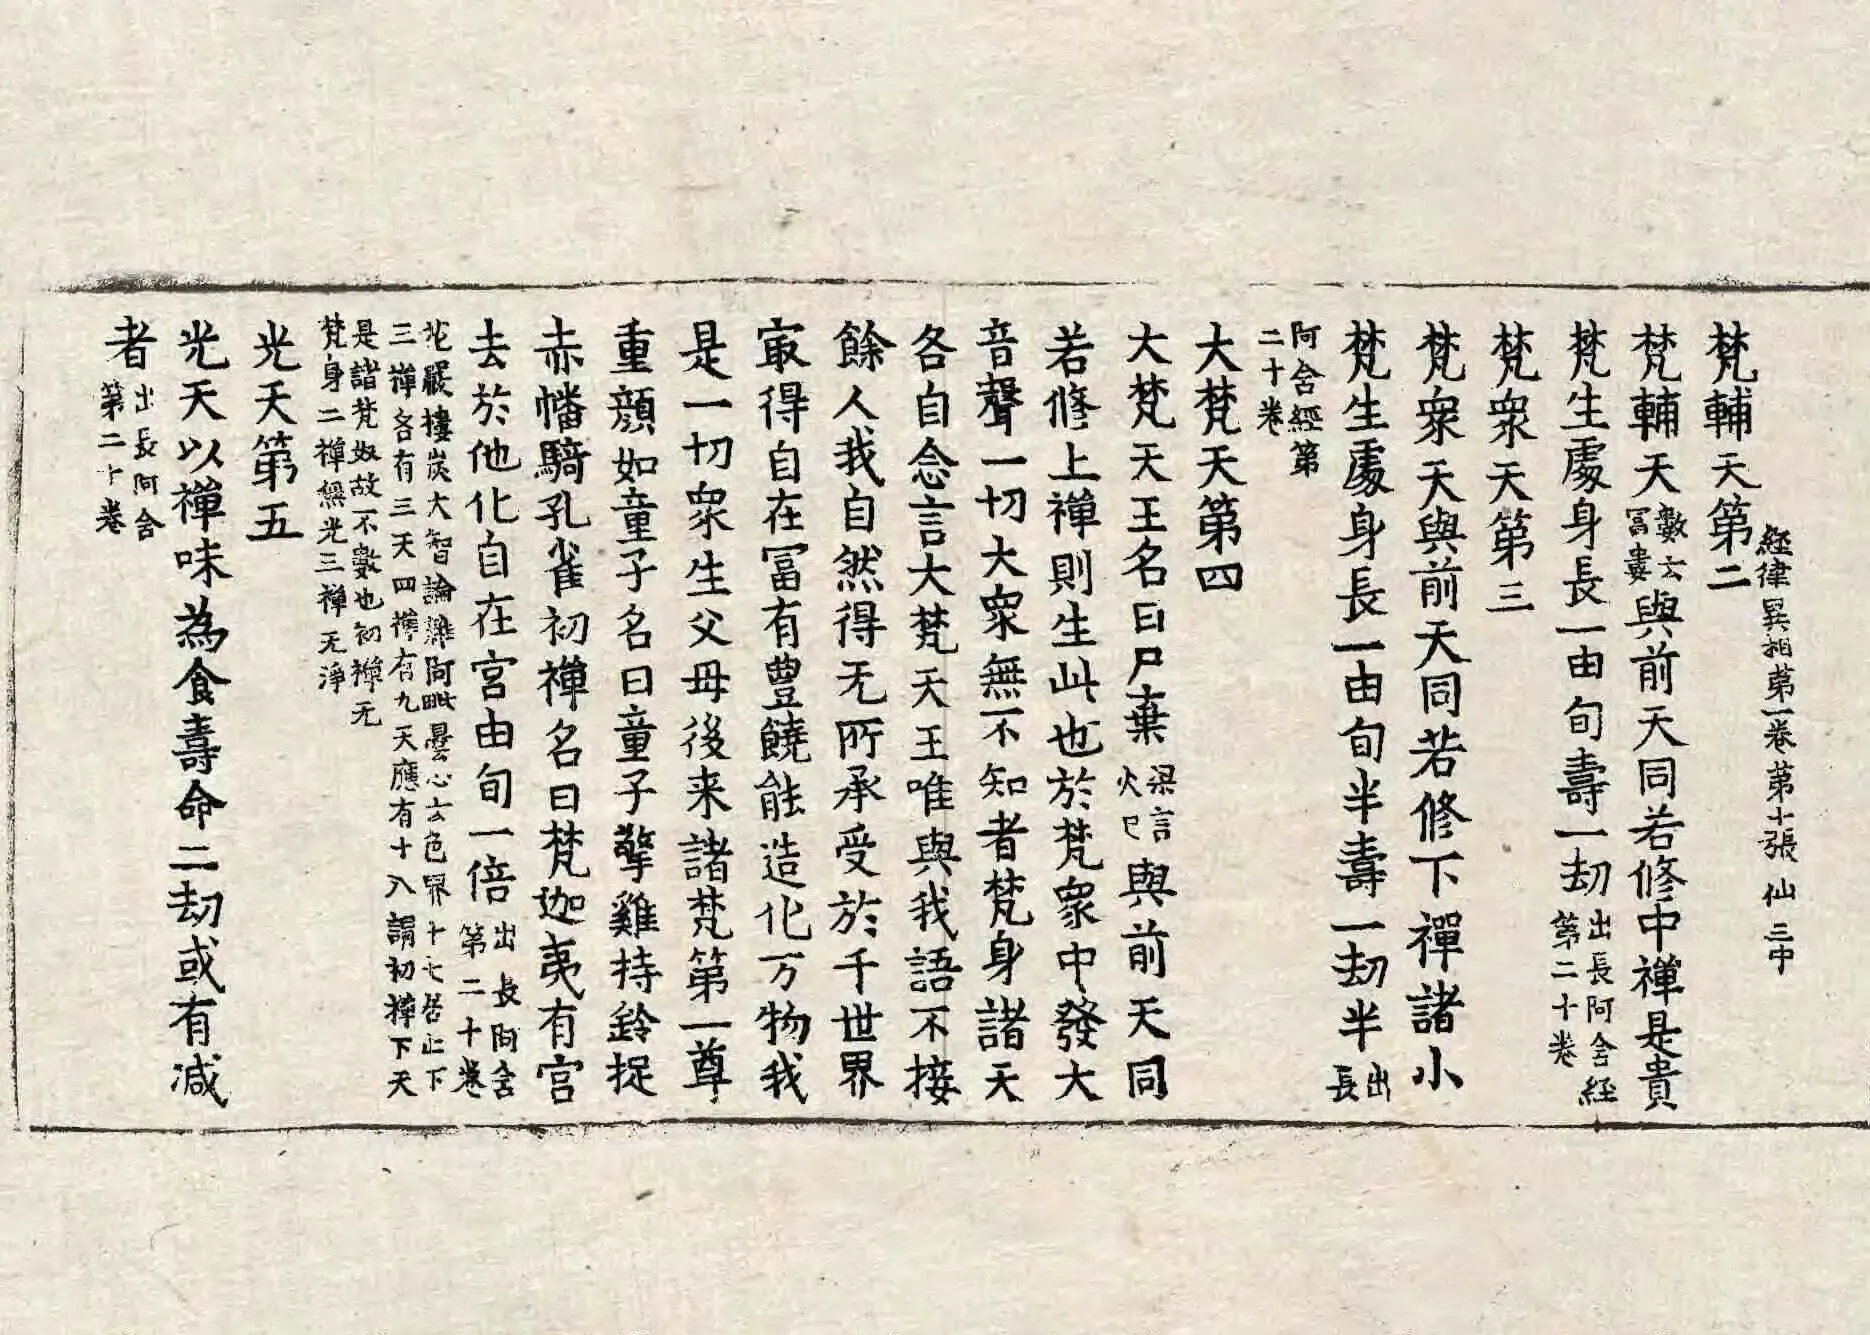 經律異相苐一卷 苐十張 仙 三中
梵輔天第二
梵輔天數云冨婁與前天同若修中禅是貴
梵生處身長一由旬壽一劫出長阿含經第二十卷
梵衆天第三
梵衆天與前天同若修下禪諸小
梵生處身長一由旬半壽一劫半出長
阿含經第二十卷
大梵天第四
大梵天王名曰尸棄梁言火與前天同
若修上禅則生此也於梵衆中發大
音聲一切大衆無不知者梵身諸天
各自念言大梵天王唯與我語不接
餘人我自然得无所承受於千世界
㝡得自在冨有豊饒能造化万物我
是一切衆生父母後来諸梵第一尊
重顔如童子名曰童子擎雞持鈴捉
赤幡騎孔雀初禅名曰梵迦夷有宮
去於他化自在宮由旬一倍出長阿含第二十卷
嚴樓炭大智論雜阿毗曇心云色界十七若止下
三禅各有三天四禅有九天應有十八謂初禅下天
是諸梵奴故不數也初禅无
梵身二禅无光三禅无淨
光天第五
光天以禅味為食壽命二劫或有減
者出長阿含第二十卷